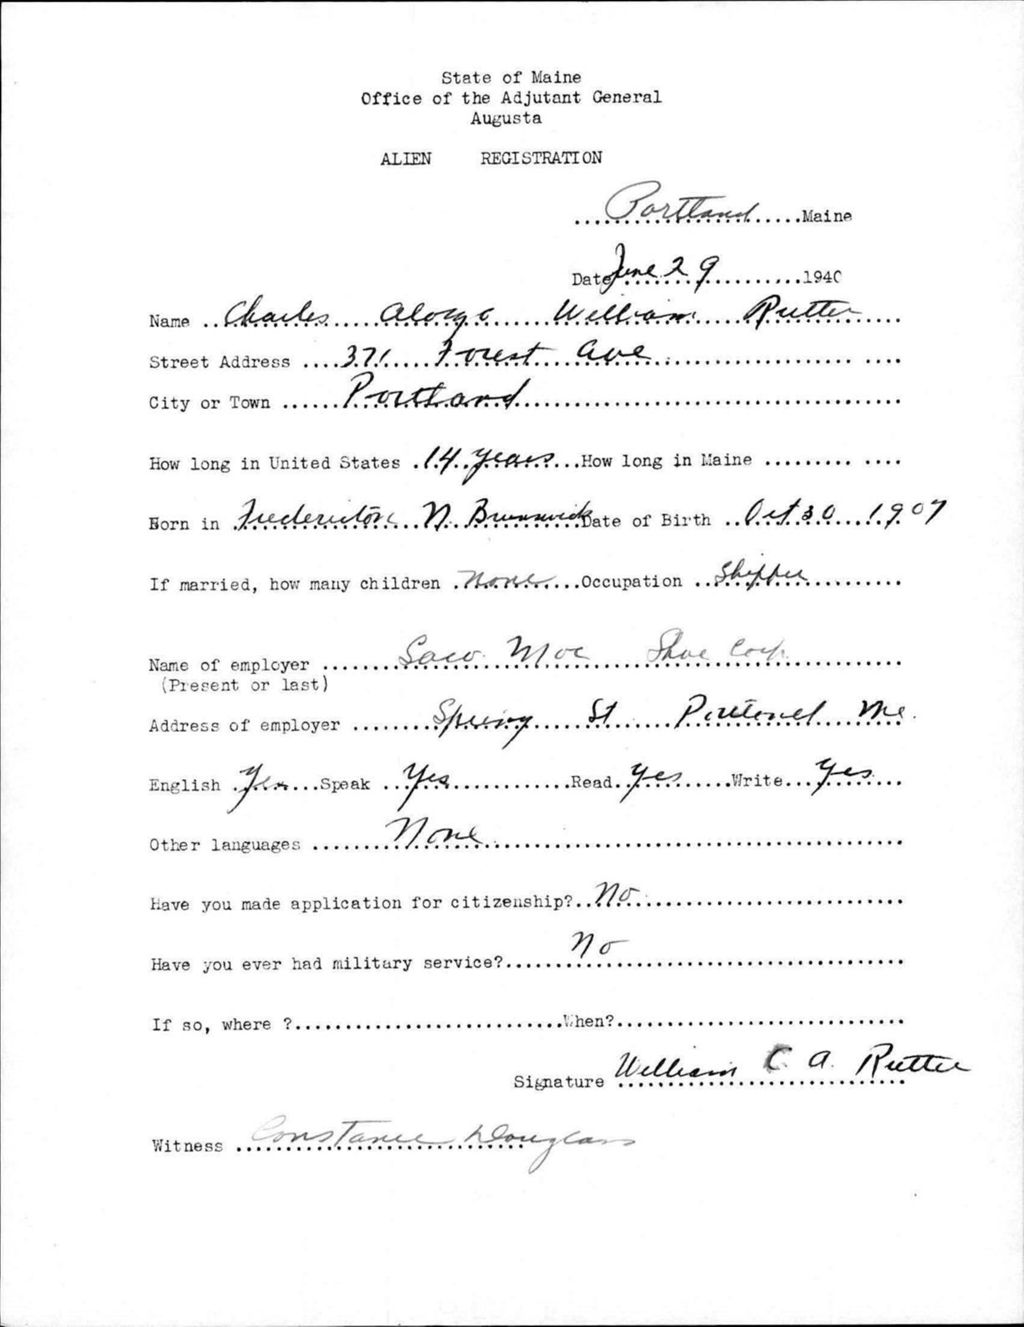 State of Maine
Office of the Adjutant General
Augusta
ALIEN REGISTRATION
Portland Maine
Date June 29 1940
Name Charles Alonzo William Rutter
Street Address 371 Forest Ave
City or Town Portland
How long in United States 14 years How long in Maine
Born in Fredericton N. Brunswick Date of Birth Oct 30 1907
If married, how many children None Occupation Shipper
Name of employer Saco Moc Shoe Corp.
(Present or last)
Address of employer Spring St Portland Me.
English Yes Speak Yes Read Yes Write Yes
Other languages None
Have you made application for citizenship? No
Have you ever had military service? No
If so, where ? When?
Signature William C. A. Rutter
Witness Constance Douglass